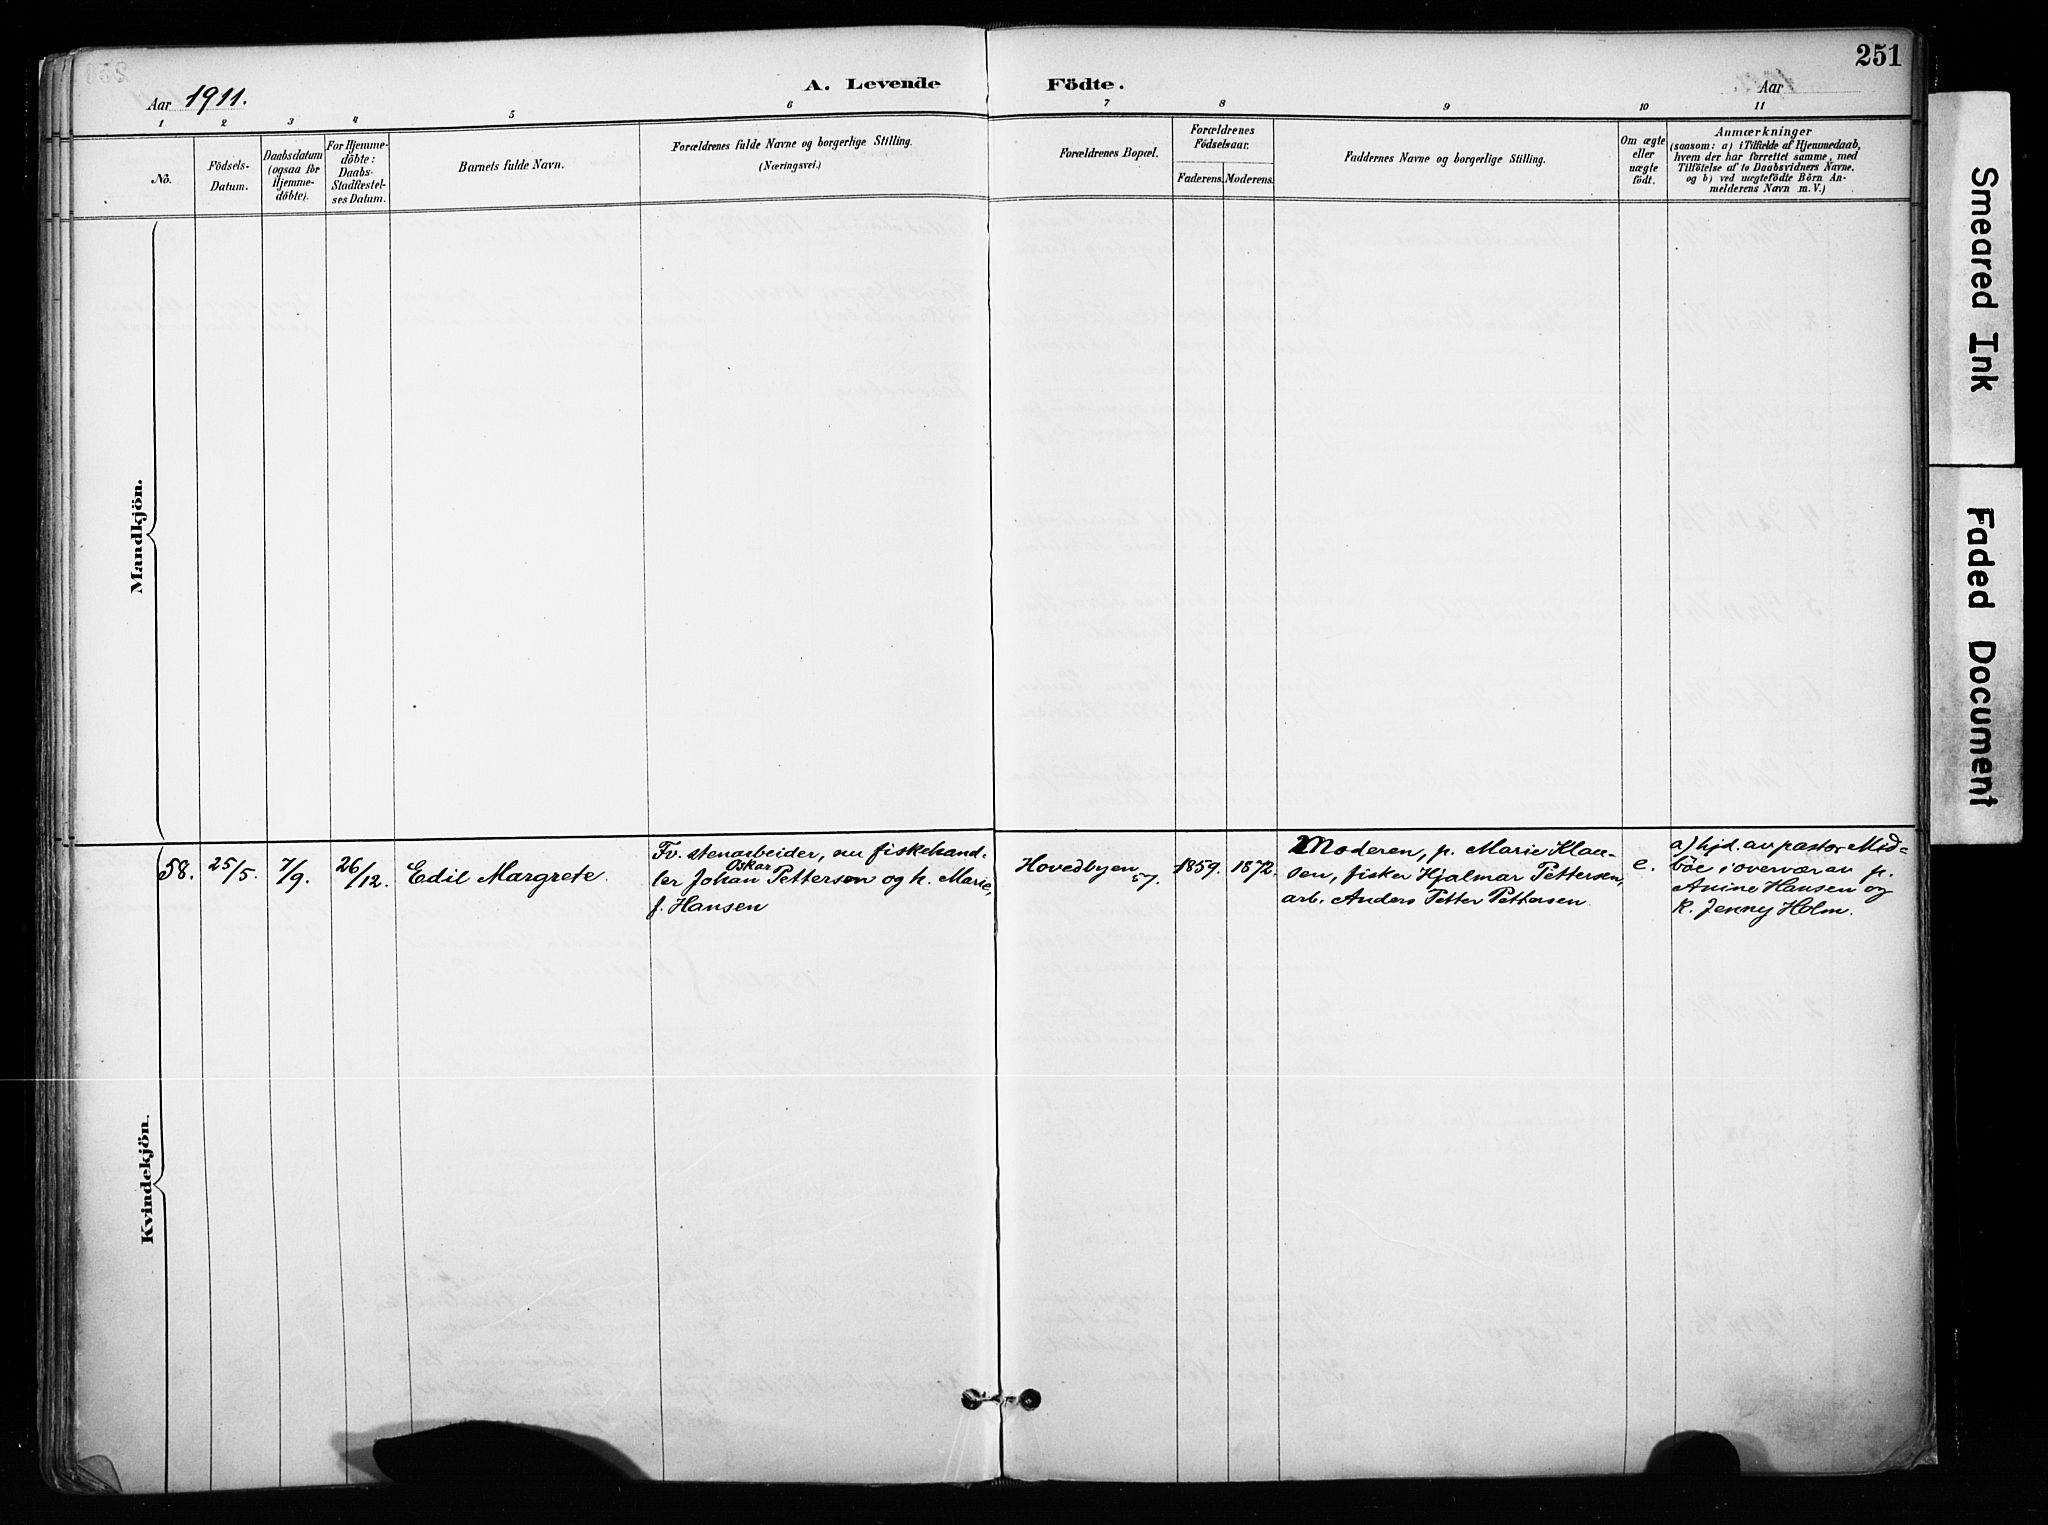 251
Aar 1911.
A. Levende Födte.
Aar
1 2 3 4 5 6 7 8 9 10 11
No.
Födsels-
Datum.
Daabsdatum
(ogsaa for
Hjemme-
döbte).
For Hjemme-
döbte:
Daabs-
Stadfæstel-
ses Datum.
Barnets fulde Navn.
Forældrenes fulde Navne og borgerlige Stilling.
(Næringsvei.)
Forældrenes Bopæl.
Forældrenes
Födselsaar.
Faderens. Moderens.
Faddernes Navne og borgerlige Stilling.
Om ægte
eller
uægte
födt.
Anmærkninger
(saasom: a) i Tilfælde af Hjemmedaab,
hvem der har forrettet samme, med
Tilföielse af to Daabsvidners Navne,
og b) ved uægtefödte Börn An-
melderens Navn m. V.)
Mandkjön.
Kvindekjön.
58.
25/5.
7/9.
26/12.
Edil Margrete.
Fv. stenarbeider, nu fiskehand-
ler Johan Oskar Pettersen og h. Marie,
f. Hansen
Hovedbyen
57.
1859.
1872.
Moderen, p. Marie Klau-
sen, fisker Hjalmar Pettersen,
arb. Anders Petter Pettersen.
e.
a) hjd. av pastor Mid-
böe i overvær av p.
Anine Hansen og
k. Jenny Holm.
Smeared Ink
Faded Document